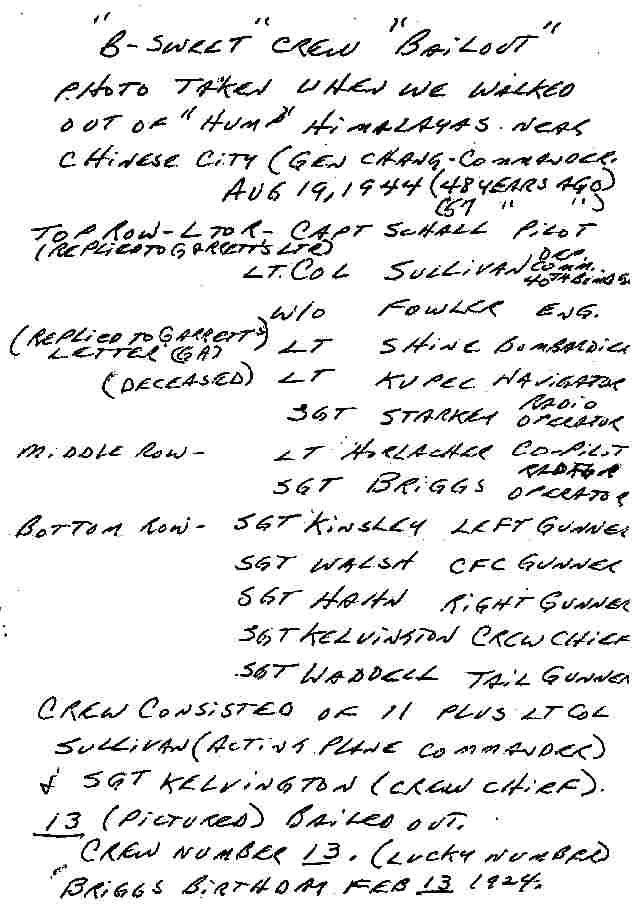 "B-SWEET" CREW "BAILOUT"
PHOTO TAKEN WHEN WE WALKED
OUT OF "HUMP" HIMALAYAS NEAR
CHINESE CITY (GEN CHANG-COMMANDER.
AUG 19, 1944 (48 YEARS AGO)
(57 " ")
TOP ROW-L TO R- CAPT SCHALL PILOT
(REPLIED TO GARRETT'S LTR)
LT. COL SULLIVAN DEP. COMM. 40TH BOMB G
W/O FOWLER ENG.
(REPLIED TO GARRETT'S LETTER (GA)) LT SHINE BOMBARDIER
(DECEASED) LT KUPEC NAVIGATOR
SGT STARKEY RADIO OPERATOR
MIDDLE ROW- LT HORLACHER CO-PILOT
SGT BRIGGS RADAR OPERATOR
BOTTOM ROW- SGT KINSLEY LEFT GUNNER
SGT WALSH CFC GUNNER
SGT HAHN RIGHT GUNNER
SGT KELVINGTON CREW CHIEF
SGT WADDELL TAIL GUNNER
CREW CONSISTED OF 11 PLUS LT COL
SULLIVAN (ACTING PLANE COMMANDER)
& SGT KELVINGTON (CREW CHIEF).
13 (PICTURED) BAILED OUT.
CREW NUMBER 13. (LUCKY NUMBER)
"BRIGGS BIRTHDAY FEB 13 1924.